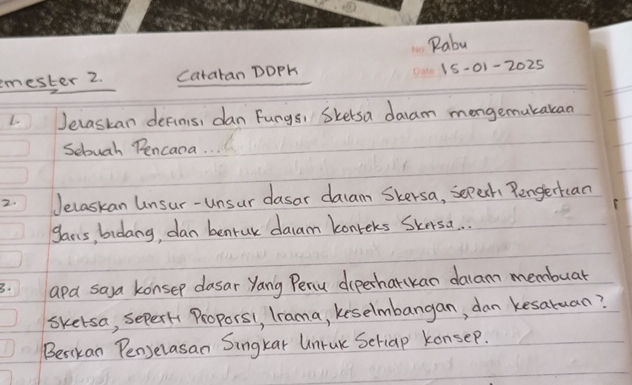 No. Rabu
emester 2. Catatan DDPK Date 15-01-2025
1. Jelaskan definisi dan Fungsi Sketsa dalam mengemukakan
Sebuah Rencana ...
2. Jelaskan Unsur-unsur dasar dalam Sketsa, seperti Pengertian
garis, bidang, dan bentuk dalam konteks Sketsa...
3. apa saja konsep dasar Yang Perlu diperhatikan dalam membuat
sketsa, seperti Proporsi, Irama, keseimbangan, dan kesatuan?
Berikan Penjelasan Singkat Untuk Setiap konsep.